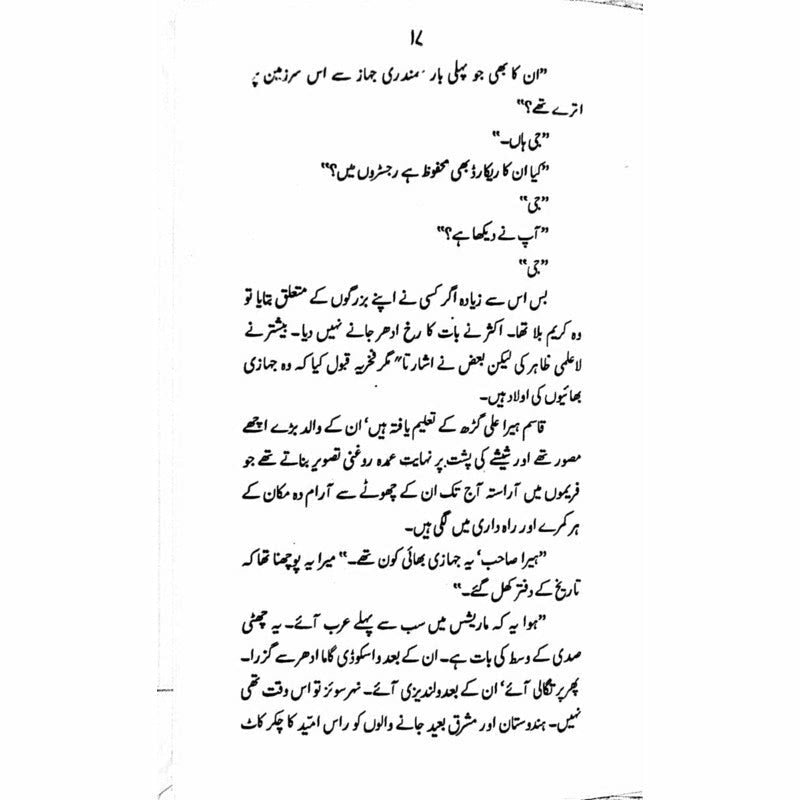 ۱۷
”ان کا بھی جو پہلی بار سمندری جہاز سے اس سرزمین پر
اترے تھے؟“
”جی ہاں۔“
”کیا ان کا ریکارڈ بھی محفوظ ہے رجسٹروں میں؟“
”جی“
”آپ نے دیکھا ہے؟“
”جی“
بس اس سے زیادہ اگر کسی نے اپنے بزرگوں کے متعلق بتایا تو
وہ کریم بلا تھا۔ اکثر نے بات کا رخ ادھر جانے نہیں دیا۔ بیشتر نے
لاعلمی ظاہر کی لیکن بعض نے اشارتا″ مگر فخریہ قبول کیا کہ وہ جہازی
بھائیوں کی اولاد ہیں۔
قاسم ہیرا علی گڑھ کے تعلیم یافتہ ہیں‘ ان کے والد بڑے اچھے
مصور تھے اور شیشے کی پشت پر نہایت عمدہ روغنی تصویر بناتے تھے جو
فریموں میں آراستہ آج تک ان کے چھوٹے سے آرام دہ مکان کے
ہر کمرے اور راہ داری میں لگی ہیں۔
”ہیرا صاحب‘ یہ جہازی بھائی کون تھے۔“ میرا یہ پوچھنا تھا کہ
تاریخ کے دفتر کھل گئے۔“
”ہوا یہ کہ ماریشس میں سب سے پہلے عرب آئے۔ یہ چھٹی
صدی کے وسط کی بات ہے۔ ان کے بعد واسکوڈی گاما ادھر سے گزرا۔
پھر پرتگالی آئے‘ ان کے بعد ولندیزی آئے۔ نہر سوئز تو اس وقت تھی
نہیں۔ ہندوستان اور مشرق بعید جانے والوں کو راس امّید کا چکر کاٹ